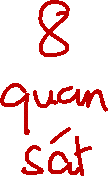 8
quan
sát